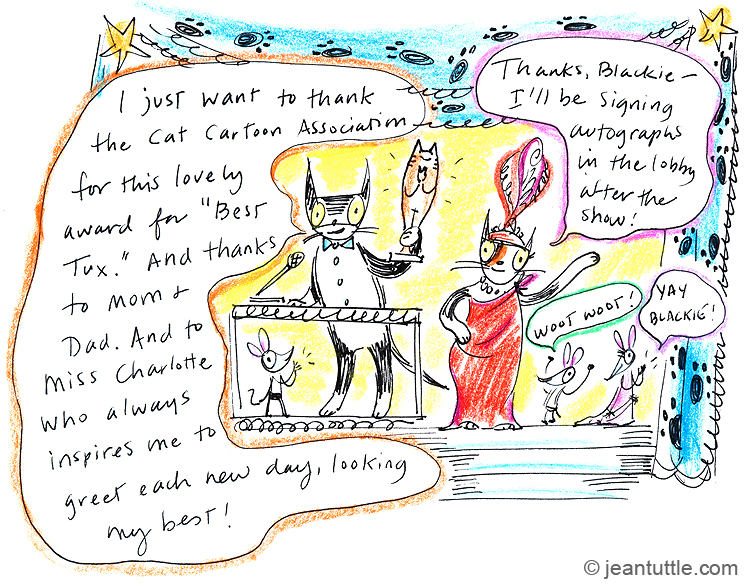 I just want to thank
the Cat Cartoon Association
for this lovely
award for "Best
Tux." And thanks
to Mom &
Dad. And to
Miss Charlotte
who always
inspires me to
greet each new day, looking
my best!
Thanks, Blackie –
I'll be signing
autographs
in the lobby
after the
show!
WOOT WOOT!
YAY
BLACKIE!
© jeantuttle.com